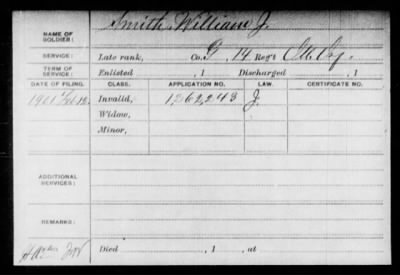 NAME OF SOLDIER: Smith, William J.
SERVICE: Late rank, Co. G, 14 Reg't Ills. Inf.
TERM OF SERVICE: Enlisted , 1 Discharged , 1
DATE OF FILING. CLASS. APPLICATION NO. LAW. CERTIFICATE NO.
1901 Feb Invalid, 1,262,243 J.
Widow,
Minor,
ADDITIONAL SERVICES:
REMARKS:
Died , 1 , at